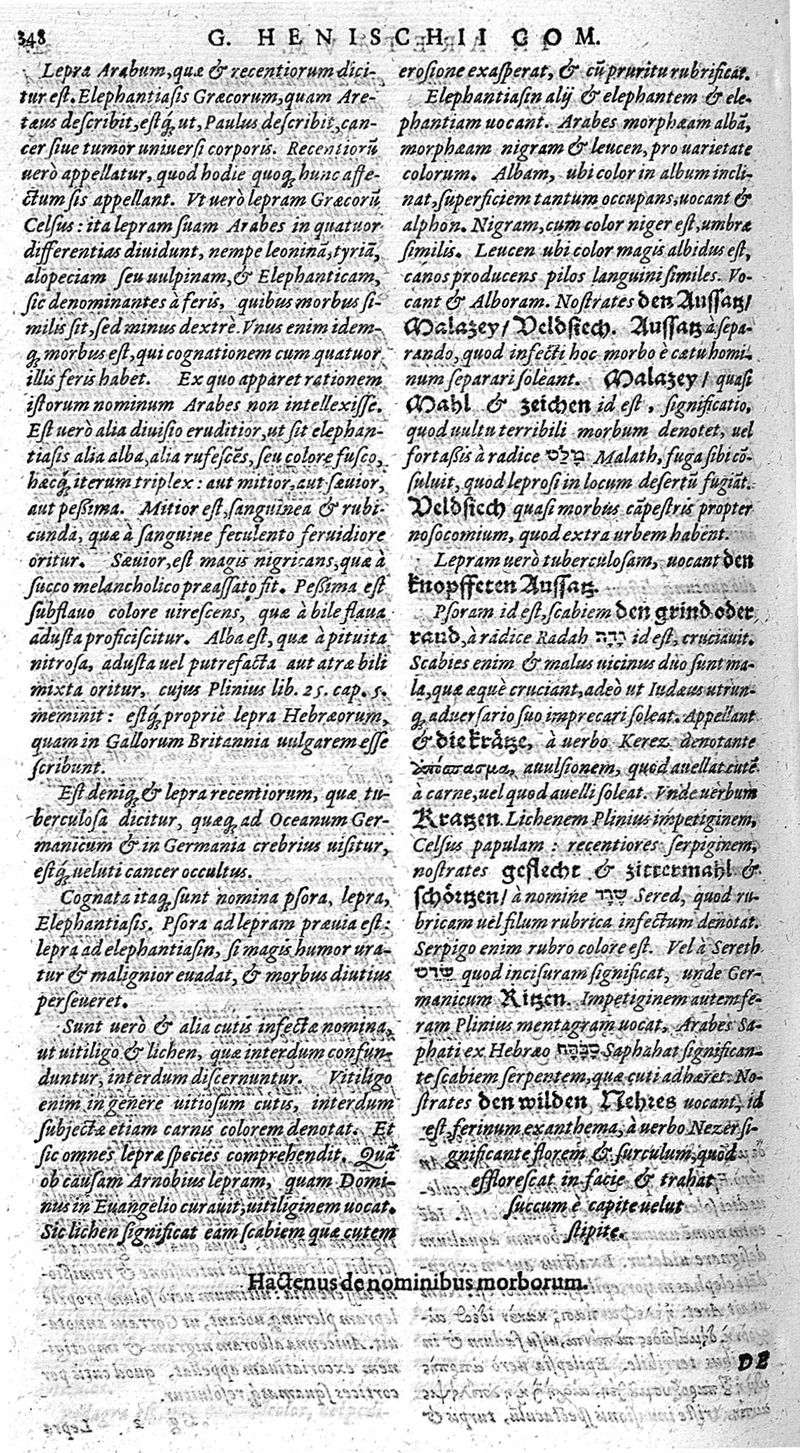 348
G. HENISCHII COM.
Lepra Arabum, quæ & recentiorum dici-
tur est. Elephantiasis Græcorum, quam Are-
tæus describit, estq́; ut, Paulus describit, can-
cer siue tumor uniuersi corporis. Recentiorũ
uerò appellatur, quod hodie quoq; hunc affe-
ctum sis appellant. Vt uerò lepram Græcorũ
Celsus: ita lepram suam Arabes in quatuor
differentias diuidunt, nempe leoninã, tyriã,
alopeciam seu uulpinam, & Elephanticam,
sic denominantes à feris, quibus morbus si-
milis sit, sed minus dextrè. Vnus enim idem-
q; morbus est, qui cognationem cum quatuor
illis feris habet. Ex quo apparet rationem
istorum nominum Arabes non intellexisse.
Est uerò alia diuisio eruditior, ut sit elephan-
tiasis alia alba, alia rufescẽs, seu colore fusco,
hæcq́; iterum triplex: aut mitior, aut sæuior,
aut peßima. Mitior est, sanguinea & rubi-
cunda, quæ à sanguine feculento feruidiore
oritur. Sæuior, est magis nigricans, quæ à
succo melancholico præassato fit. Peßima est
subflauo colore uirescens, quæ à bile flaua
adusta proficiscitur. Alba est, quæ à pituita
nitrosa, adusta uel putrefacta aut atræ bili
mixta oritur, cujus Plinius lib. 25. cap. 5.
meminit: estq́; propriè lepra Hebræorum,
quam in Gallorum Britannia uulgarem esse
scribunt.
Est deniq; & lepra recentiorum, quæ tu-
berculosa dicitur, quæq; ad Oceanum Ger-
manicum & in Germania crebrius uisitur,
estq́; ueluti cancer occultus.
Cognata itaq; sunt nomina psora, lepra,
Elephantiasis. Psora ad lepram præuia est:
lepra ad elephantiasin, si magis humor ura-
tur & malignior euadat, & morbus diutius
perseueret.
Sunt uerò & alia cutis infectæ nomina,
ut uitiligo & lichen, quæ interdum confun-
duntur, interdum discernuntur. Vitiligo
enim in genere uitiosum cutis, interdum
subjectæ etiam carnis colorem denotat. Et
sic omnes lepræ species comprehendit. Quã
ob causam Arnobius lepram, quam Domi-
nus in Euangelio curauit, uitiliginem uocat.
Sic lichen significat eam scabiem quæ cutem
erosione exasperat, & cũ pruritu rubrificat.
Elephantiasin alij & elephantem & ele-
phantiam uocant. Arabes morphæam albã,
morphæam nigram & leucen, pro uarietate
colorum. Albam, ubi color in album incli-
nat, superficiem tantum occupans, uocant &
alphon. Nigram, cum color niger est, umbræ
similis. Leucen ubi color magis albidus est,
canos producens pilos languini similes. Vo-
cant & Alboram. Nostrates den Aussatz/
Malazey/ Veldsiech. Aussatz à sepa-
rando, quod infecti hoc morbo è cætu homi-
num separari soleant. Malazey/ quasi
Mahl & zeichen id est, significatio,
quod uultu terribili morbum denotet, uel
fortaßis à radice מלט Malath, fuga sibi cõ-
suluit, quod leprosi in locum desertũ fugiãt.
Veldsiech quasi morbus cãpestris propter
nosocomium, quod extra urbem habent.
Lepram uerò tuberculosam, uocant den
knopffeten Aussatz.
Psoram id est, scabiem den grind oder
raud, à radice Radah רדה id est, cruciauit.
Scabies enim & malus uicinus duo sunt ma-
la, quæ æquè cruciant, adeò ut Iudæus utrun-
q; aduersario suo imprecari soleat. Appellant
& die krätze, à uerbo Kerez denotante
ἀπόσπασμα, auulsionem, quod auellat cutẽ
à carne, uel quod auelli soleat. Vnde uerbum
Kratzen. Lichenem Plinius impetiginem,
Celsus papulam: recentiores serpiginem,
nostrates geflecht & zittermahl &
schörtzen/ à nomine שרד Sered, quod ru-
bricam uel filum rubrica infectum denotat.
Serpigo enim rubro colore est. Vel à Sereth
שרט quod incisuram significat, unde Ger-
manicum Ritzen. Impetiginem autem fe-
ram Plinius mentagram uocat, Arabes Sa-
phati ex Hebræo ספחת Saphahat significan-
te scabiem serpentem, quæ cuti adhæret. No-
strates den wilden Nehres uocant, id
est, ferinum exanthema, à uerbo Nezer si-
gnificante florem & surculum, quod
efflorescat in facie & trahat
succum è capite uelut
stipite.
Hactenus de nominibus morborum.
DE